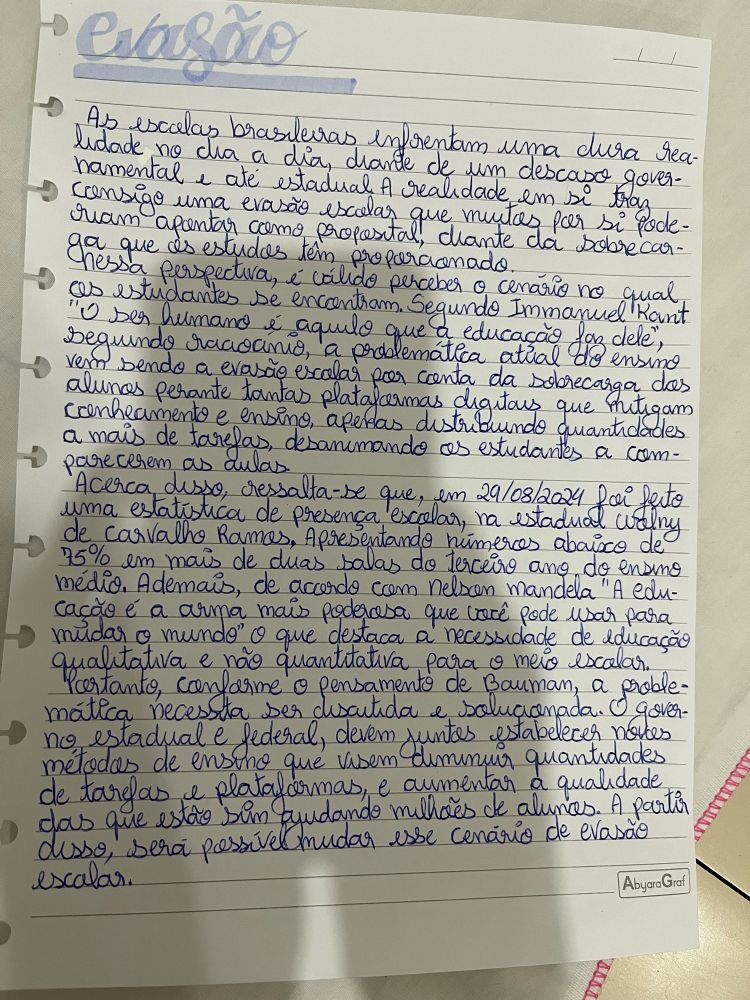 evasão
/ /
As escolas brasileiras enfrentam uma dura rea-
lidade no dia a dia, diante de um descaso gover-
namental e até estadual A realidade em si traz
consigo uma evasão escolar que muitos por si pode-
riam apontar como proposital, diante da sobrecar-
ga que os estudos têm proporcionado.
Nessa perspectiva, é válido perceber o cenário no qual
os estudantes se encontram. Segundo Immanuel Kant
"O ser humano é aquilo que a educação faz dele",
segundo raciocínio, a problemática atual do ensino
vem sendo a evasão escolar por conta da sobrecarga dos
alunos perante tantas plataformas digitais que mitigam
conhecimento e ensino, apenas distribuindo quantidades
a mais de tarefas, desanimando os estudantes a com-
parecerem as aulas.
Acerca disso, ressalta-se que, em 29/08/2024 foi feito
uma estatística de presença escolar, na estadual
de Carvalho Ramos, Apresentando números abaixo de
75% em mais de duas salas do terceiro ano do ensino
médio. Ademais, de acordo com nelson mandela "A edu-
cação é a arma mais poderosa que você pode usar para
mudar o mundo" O que destaca a necessidade de educação
qualitativa e não quantitativa para o meio escolar.
Portanto, conforme o pensamento de Bauman, a proble-
mática necessita ser discutida e solucionada. O gover-
no estadual e federal, devem juntos estabelecer novos
métodos de ensino que visem diminuir quantidades
de tarefas e plataformas, e aumentar a qualidade
das que estão sim ajudando milhões de alunos. A partir
disso, será possível mudar esse cenário de evasão
escolar.
AbyaraGraf